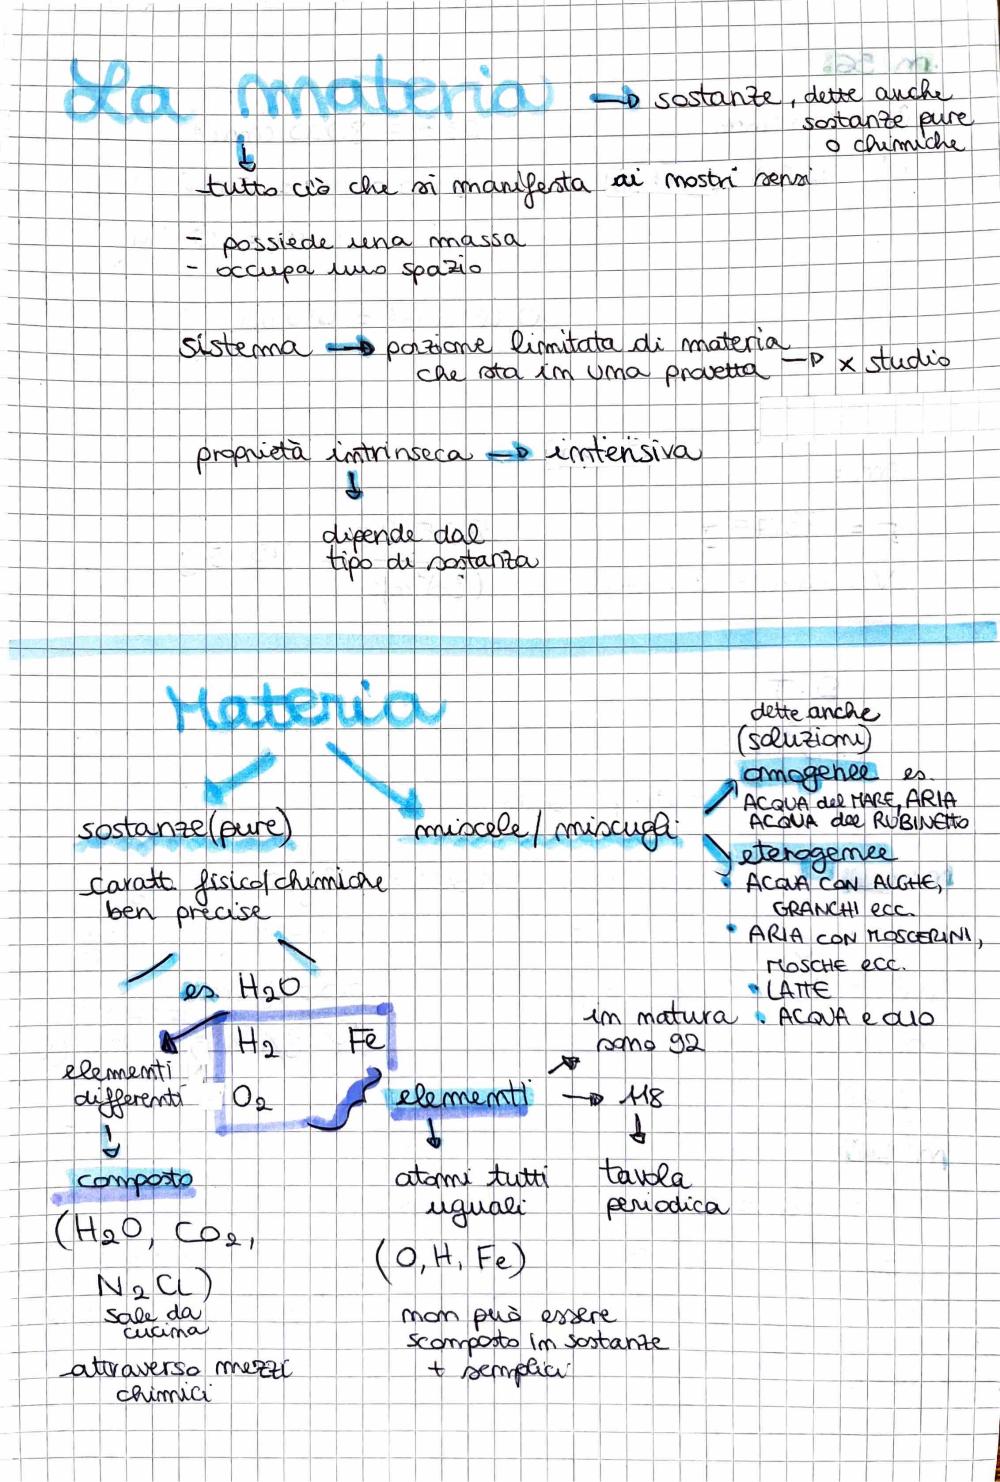 La materia → sostanze, dette anche
sostanze pure
o chimiche
tutto ciò che si manifesta ai nostri sensi
- possiede una massa
- occupa uno spazio
sistema → porzione limitata di materia
che sta in una provetta → x studio
proprietà intrinseca → intensiva
dipende dal
tipo di sostanza
Materia
sostanze (pure)
caratt. fisico/chimiche
ben precise
es. H2O
H2 Fe
O2
elementi
differenti
composto
(H2O, CO2,
N2Cl)
sale da
cucina
attraverso mezzi
chimici
miscele/miscugli
dette anche
(soluzioni)
omogenee es.
ACQUA del MARE, ARIA
ACQUA del RUBINETTO
eterogenee
• ACQUA CON ALGHE,
GRANCHI ecc.
• ARIA CON MOSCERINI,
MOSCHE ecc.
• LATTE
• ACQUA e OLIO
elementi → 118
in natura
sono 92
tavola
periodica
atomi tutti
uguali
(O, H, Fe)
non può essere
scomposto in sostanze
+ semplici